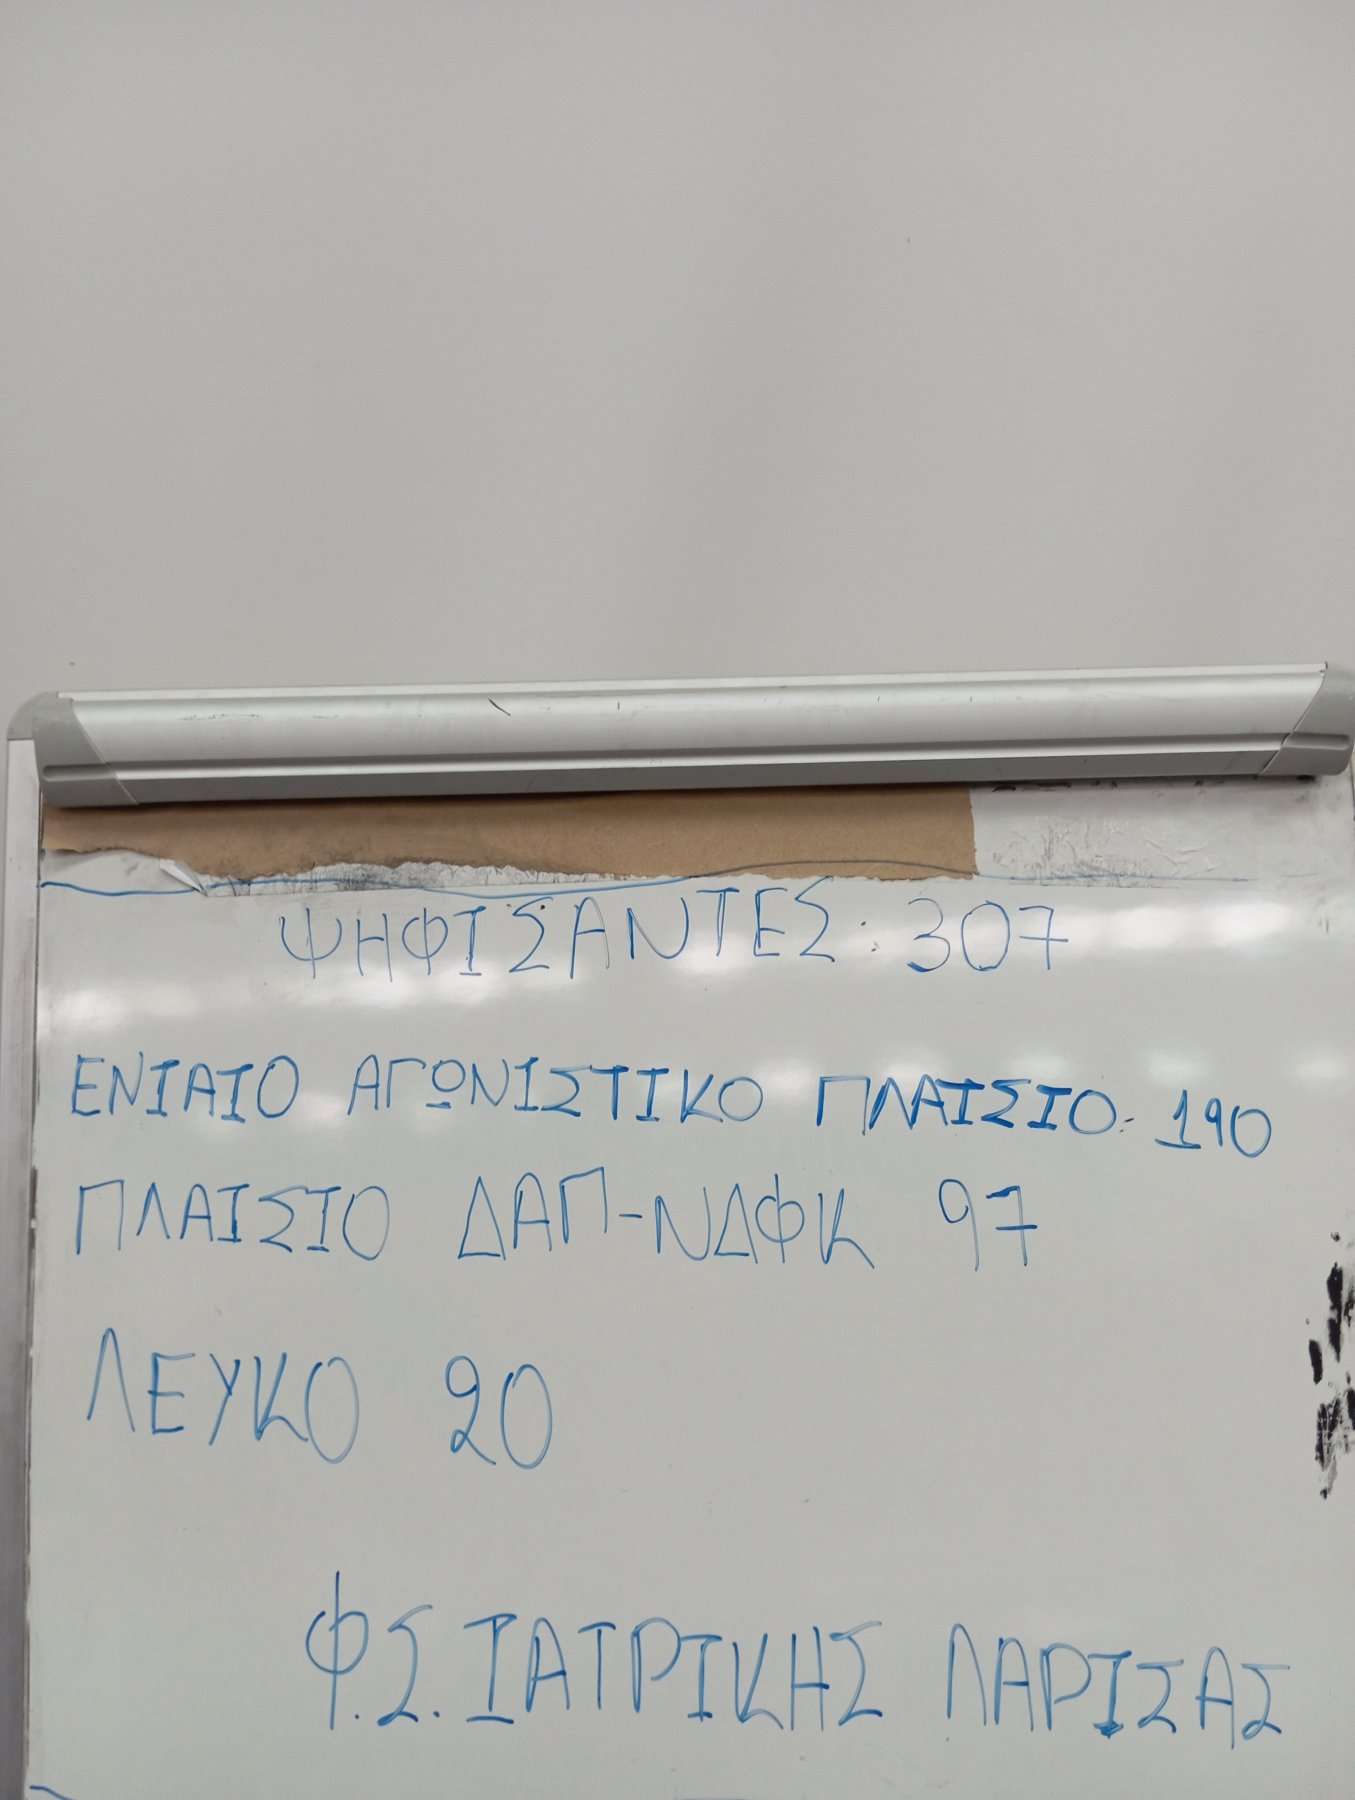 ΨΗΦΙΣΑΝΤΕΣ: 307
ΕΝΙΑΙΟ ΑΓΩΝΙΣΤΙΚΟ ΠΛΑΙΣΙΟ: 190
ΠΛΑΙΣΙΟ ΔΑΠ-ΝΔΦΚ 97
ΛΕΥΚΟ 20
Φ.Σ. ΙΑΤΡΙΚΗΣ ΛΑΡΙΣΑΣ